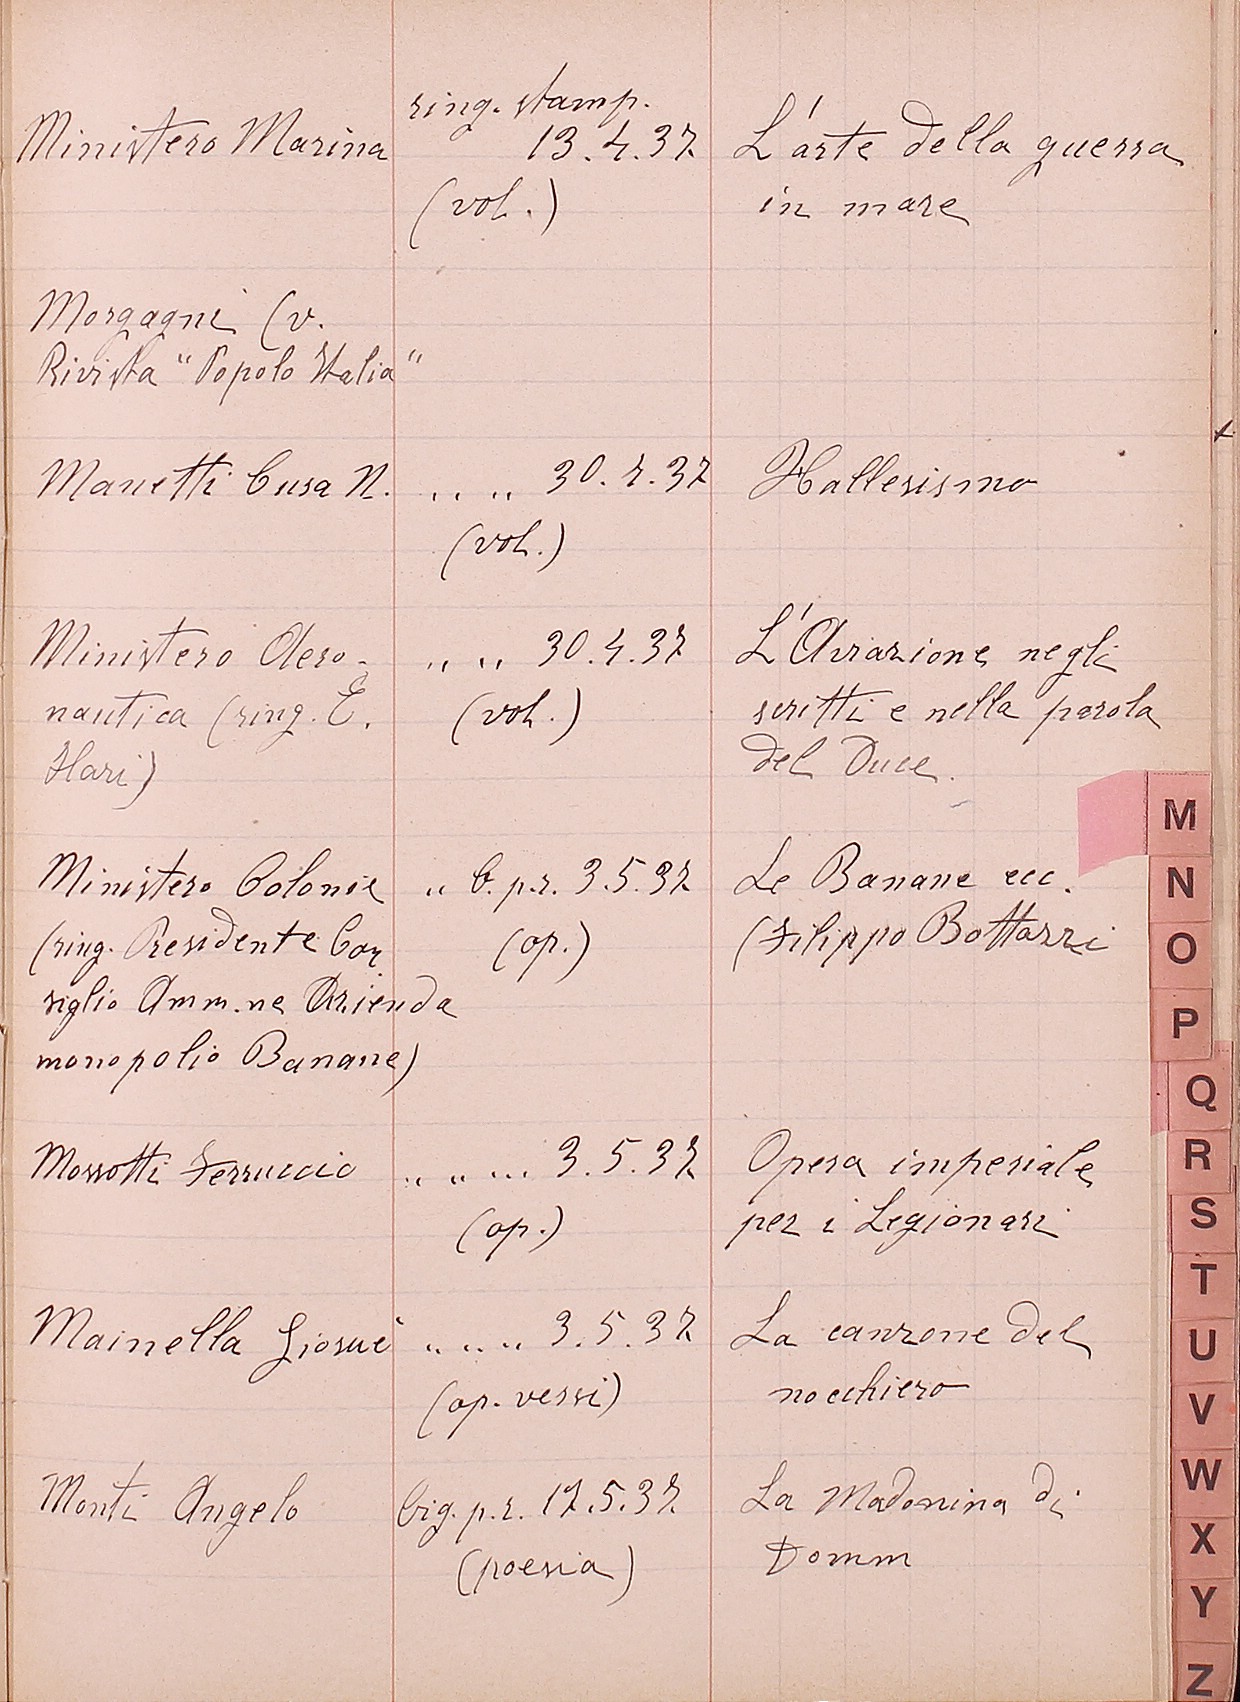 ring. stamp.
Ministero Marina 13.4.37 L'arte della guerra
(vol.) in mare
Morgagni (v.
Rivista "Popolo Italia"
Manetti Cusa N. " " 30.4.37 Hallesismo
(vol.)
Ministero Aero- " " 30.4.37 L'Aviazione negli
nautica (ring. E. (vol.) scritti e nella parola
Ilari) del Duce.
Ministero Colonie " b. p.r. 3.5.37 Le Banane ecc.
(ring. Presidente Con (op.) (Filippo Bottazzi
siglio Amm.ne Azienda
monopolio Banane)
Mossotti Ferruccio " " " 3.5.37 Opera imperiale
(op.) per i Legionari
Mainella Giosuè " " " 3.5.37 La canzone del
(op. versi) nocchiero
Monti Angelo big. p.r. 17.5.37 La Madonina di
(poesia) Domm
M
N
O
P
Q
R
S
T
U
V
W
X
Y
Z